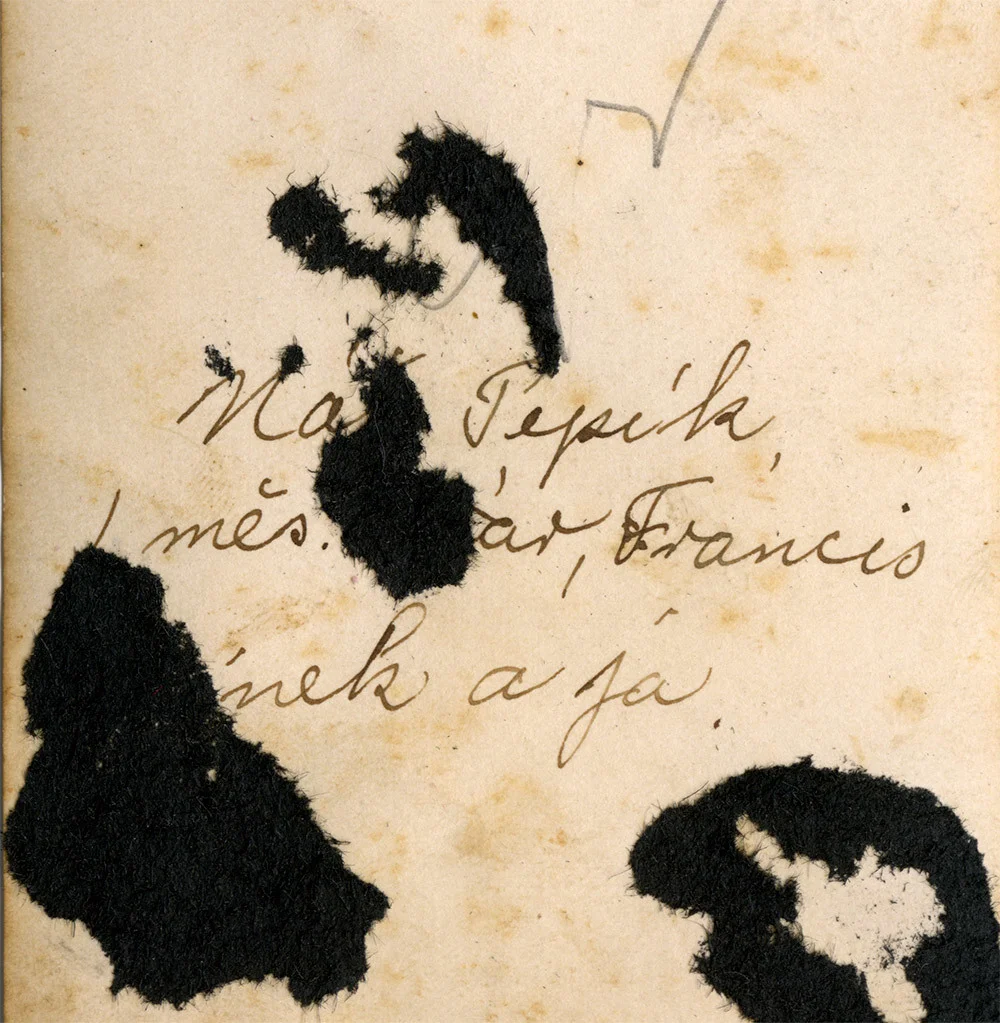 Na Pepík,
1 měs. ár, Francis
ínek a já.